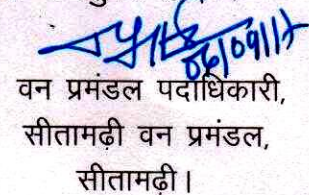 06/09/17
वन प्रमंडल पदाधिकारी,
सीतामढ़ी वन प्रमंडल,
सीतामढ़ी।